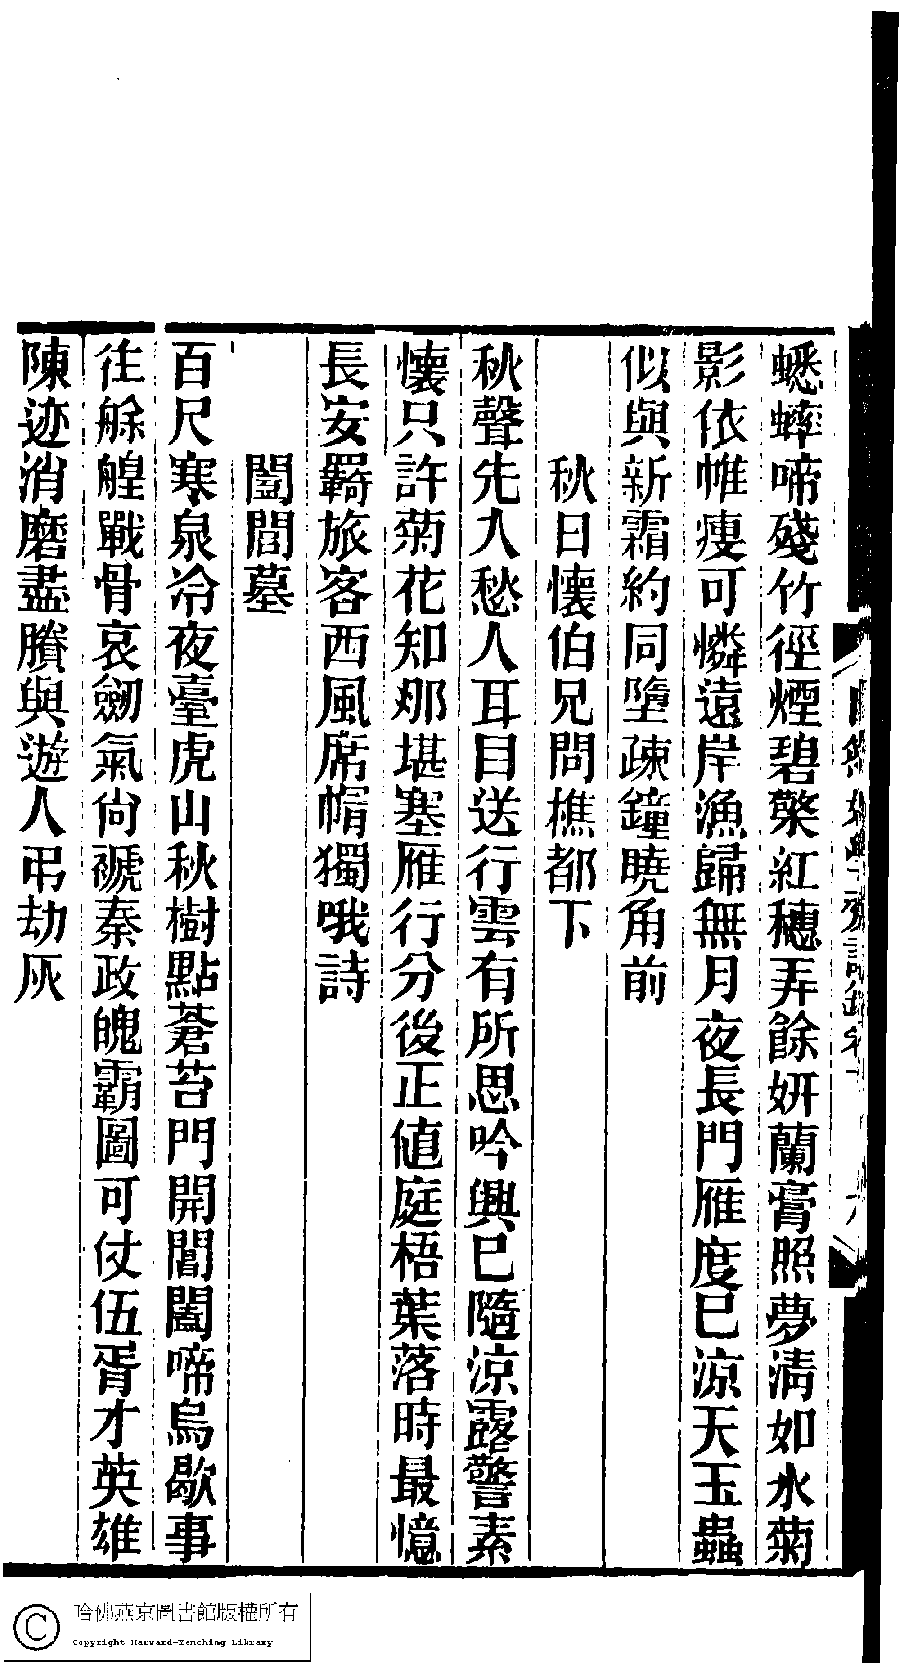 蟋蟀啼殘竹徑煙碧檠紅穗弄餘妍蘭膏照夢清如水菊
影依帷瘦可憐遠岸漁歸無月夜長門雁度已涼天玉蟲
似與新霜約同墮疎鐘曉角前
秋日懷伯兄問樵都下
秋聲先入愁人耳目送行雲有所思吟興已隨涼露警素
懷只許菊花知那堪塞雁行分後正値庭梧葉落時最憶
長安羇旅客西風席帽獨哦詩
闔閭墓
百尺寒泉冷夜臺虎山秋樹點蒼苔門開閶闔啼烏歇事
往艅艎戰骨哀劒氣尙褫秦政魄霸圖可仗伍胥才英雄
陳迹消磨盡賸與遊人弔劫灰
哈佛燕京圖書館版權所有
Copyright Harvard-Yenching Library